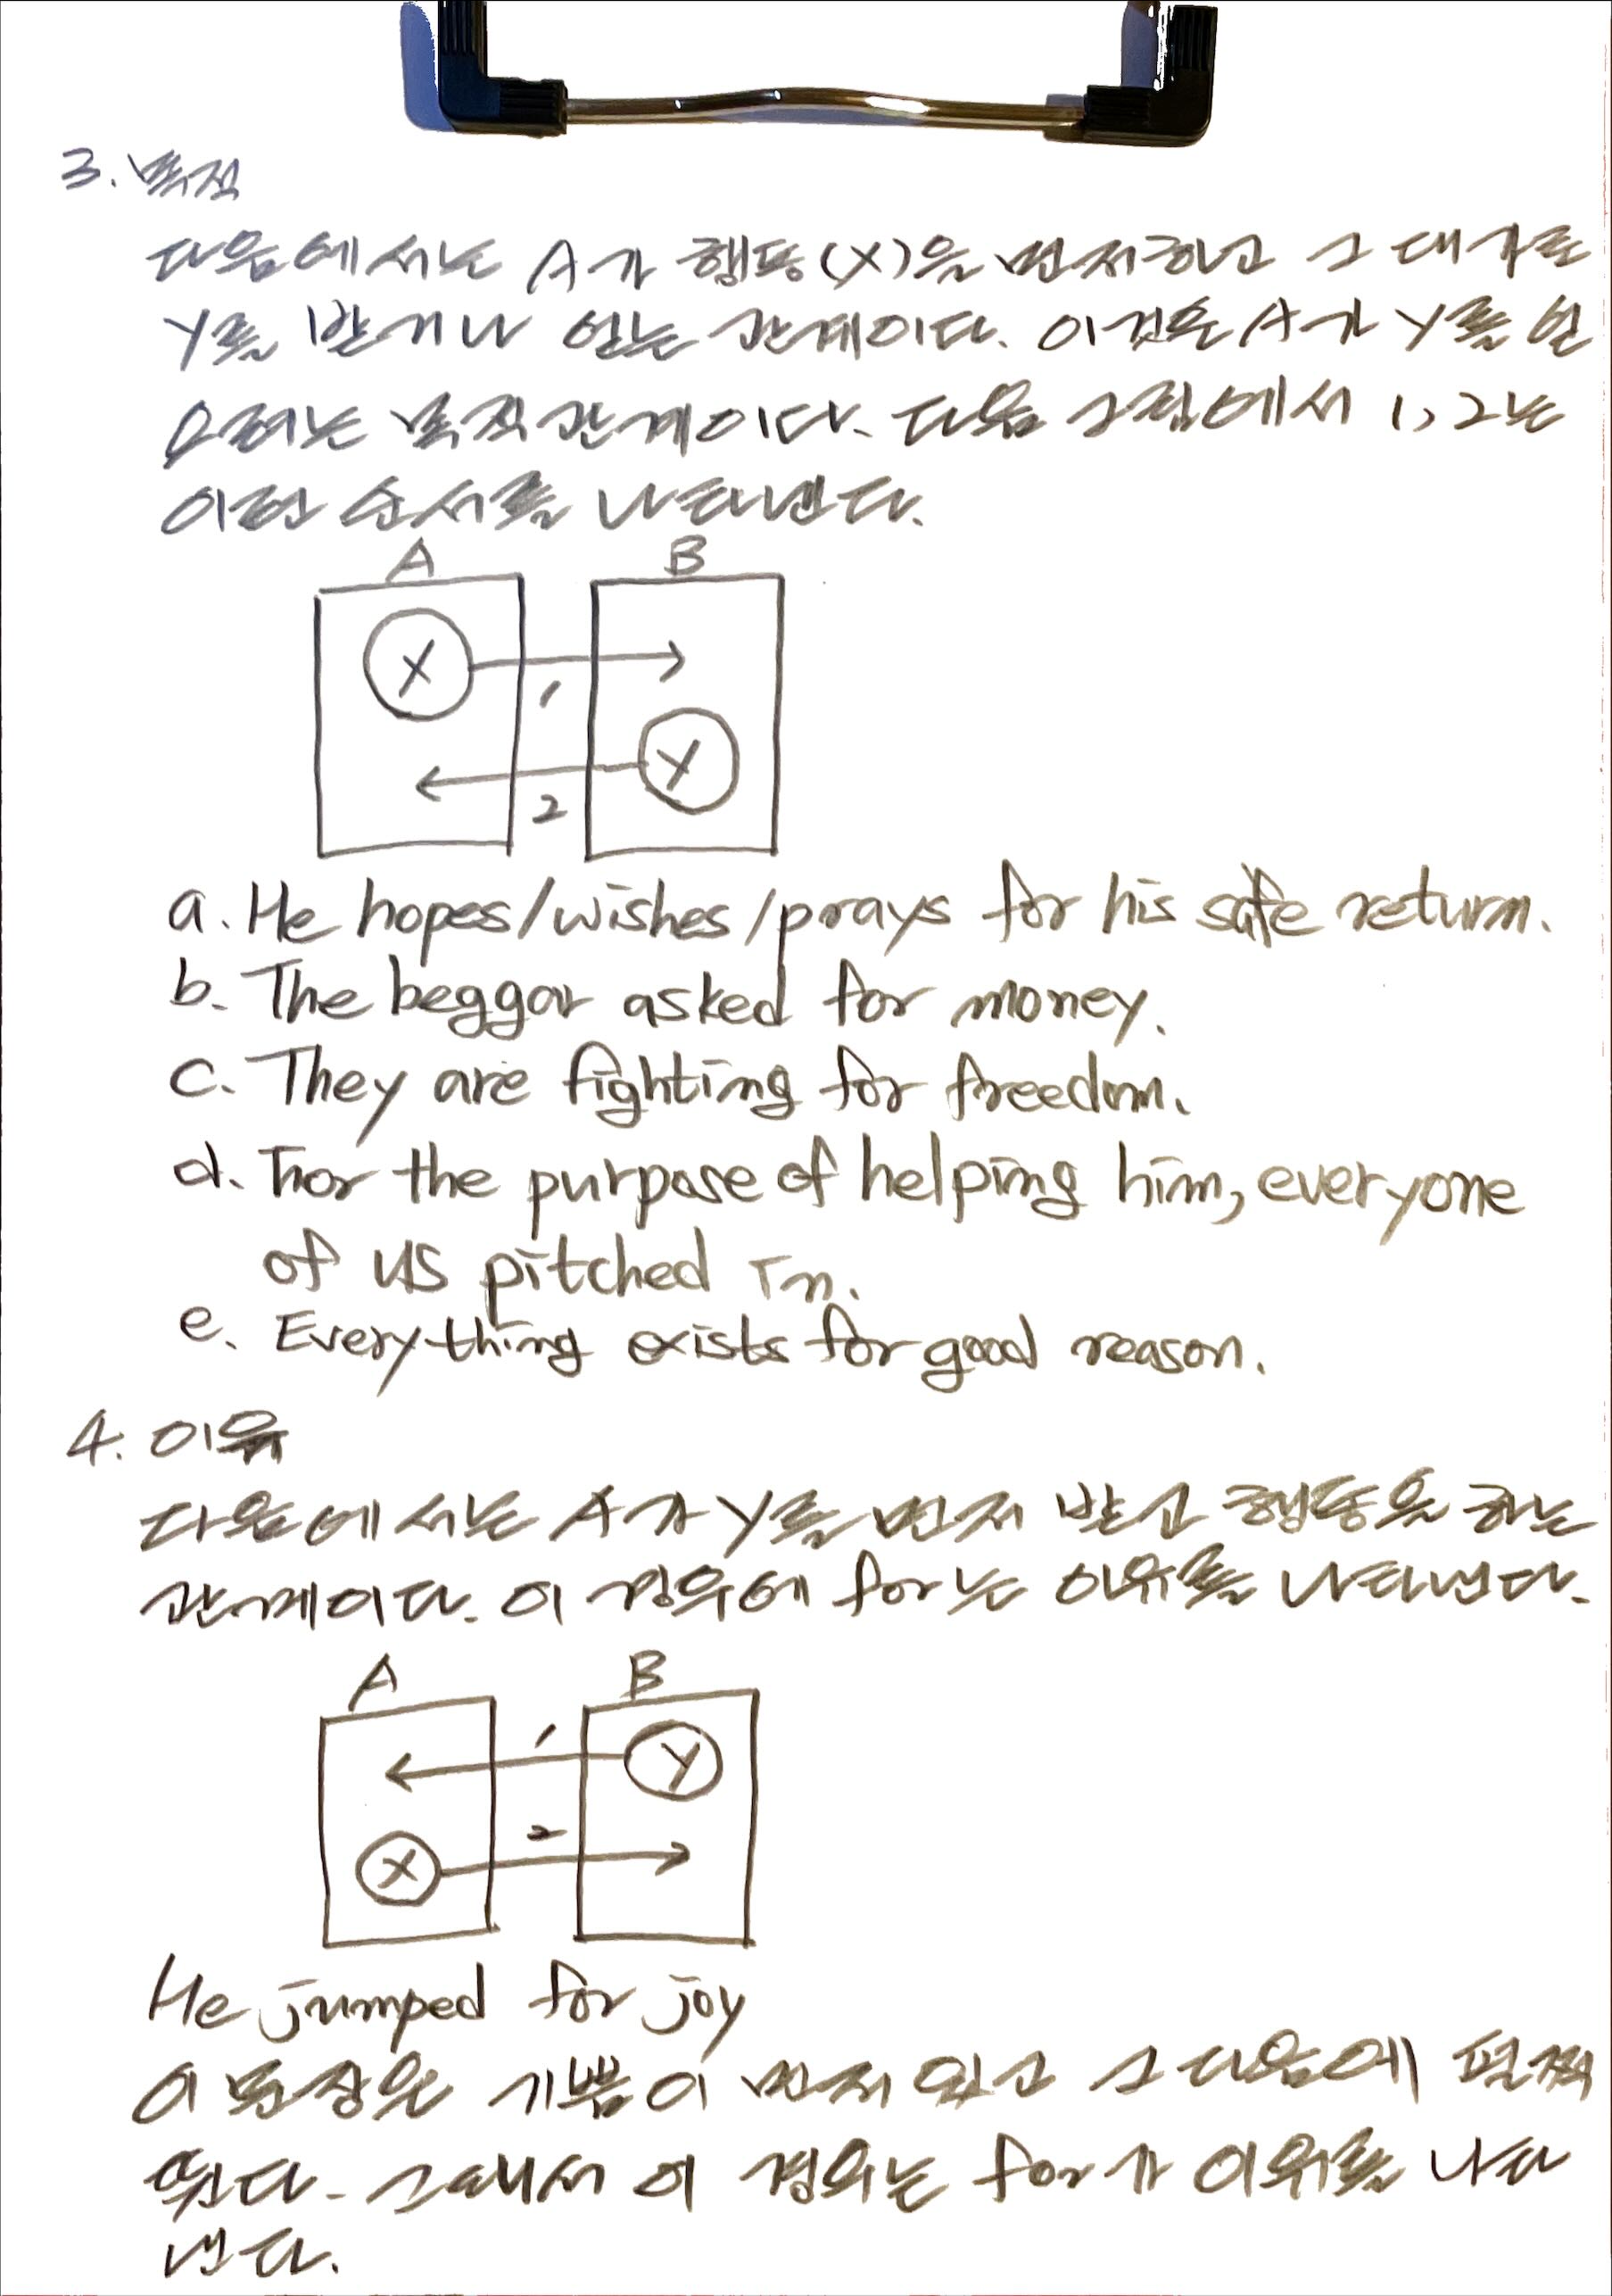 3. 목적
다음에서는 A가 행동(X)을 먼저하고 그 대가로
Y를 받거나 얻는 관계이다. 이것은 A가 Y를 얻
으려는 목적관계이다. 다음 그림에서 1, 2는
이런 순서를 나타낸다.
A B
X
1
Y
2
a. He hopes/wishes/prays for his safe return.
b. The beggar asked for money.
c. They are fighting for freedom.
d. For the purpose of helping him, everyone
of us pitched in.
e. Everything exists for good reason.
4. 이유
다음에서는 A가 Y를 먼저 받고 행동을 하는
관계이다. 이 경우에 for는 이유를 나타낸다.
A B
1
Y
2
X
He jumped for joy
이 문장은 기쁨이 먼저 있고 그 다음에 펄쩍
뛰다. 그래서 이 경우는 for가 이유를 나타
낸다.